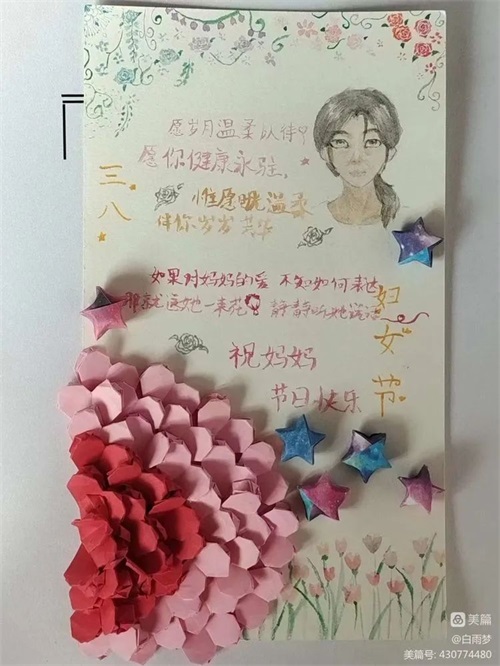 愿岁月温柔以待
愿你健康永驻,
三八
惟愿暖温柔
伴你岁岁芳华
如果对妈妈的爱 不知如何表达
那就送她一束花 静静听她说话
妇女节
祝妈妈
节日快乐
美篇
@白雨梦
美篇号: 430774480